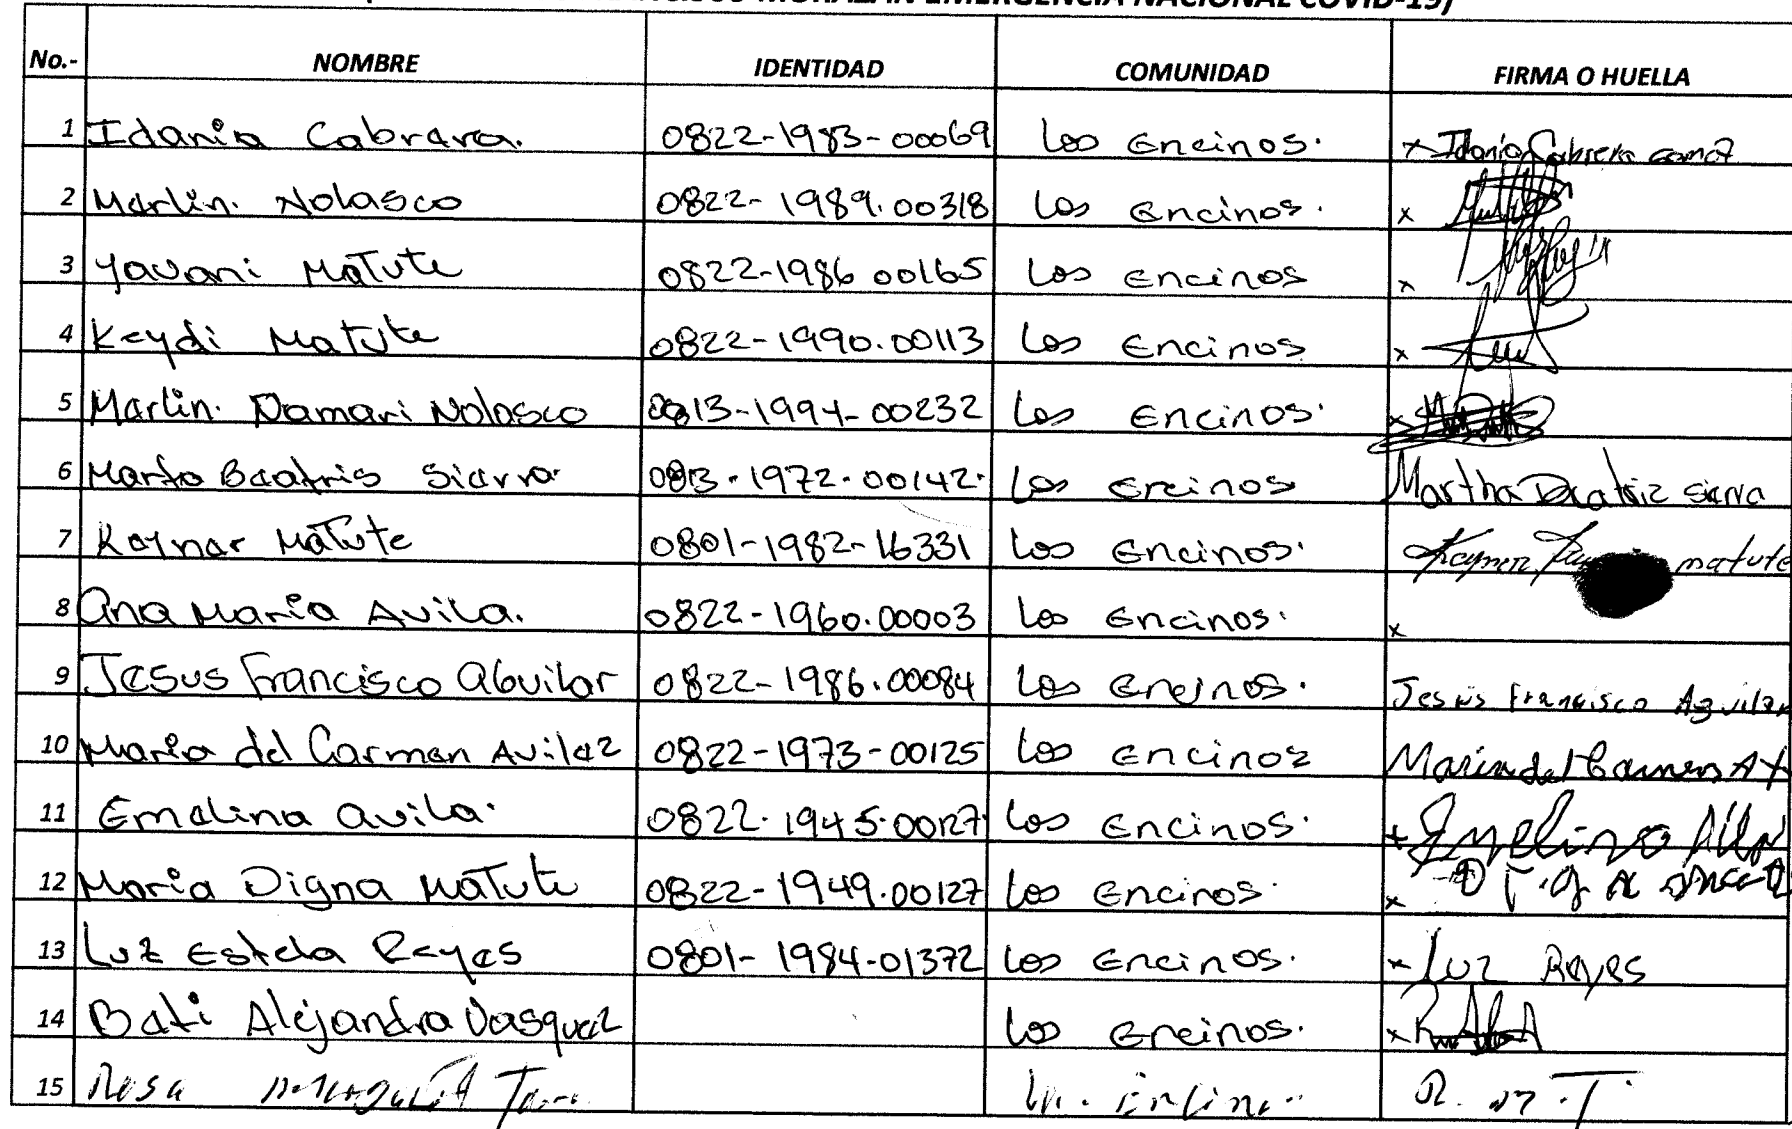 MORAZAN EMERGENCIA NACIONAL COVID-19)
No.- NOMBRE IDENTIDAD COMUNIDAD FIRMA O HUELLA
1 Idania Cabrera. 0822-1983-00069 Los Encinos. x Idania Cabrera
2 Marlin. Nolasco 0822-1989.00318 Los Encinos. x
3 Yavani Matute 0822-1986 00165 Los Encinos x
4 Keydi Matute 0822-1990.00113 Los Encinos x
5 Marlin. Damari Nolasco 0813-1994-00232 Los Encinos. x
6 Marta Beatris Sierra. 0813-1972-00142. Los Encinos Martha Beatriz Sierra
7 Keyner Matute 0801-1982-16331 Los Encinos. Keyner matute
8 Ana Maria Avila. 0822-1960.00003 Los Encinos. x
9 Jesus Francisco Aguilar 0822-1986.00084 Los Encinos. Jesus Francisco Aguilar
10 Maria del Carmen Avilez 0822-1973-00125 Los Encinos Maria del Carmen A
11 Emelina Avila. 0822.1945.00127 Los Encinos. x Emelina
12 Maria Digna Matute 0822-1949.00127 Los Encinos. x Digna
13 Luz Estela Reyes 0801-1984-01372 Los Encinos. x Luz Reyes
14 Beti Alejandra Vasquez Los Encinos. x
15 Rosa R. M. T.